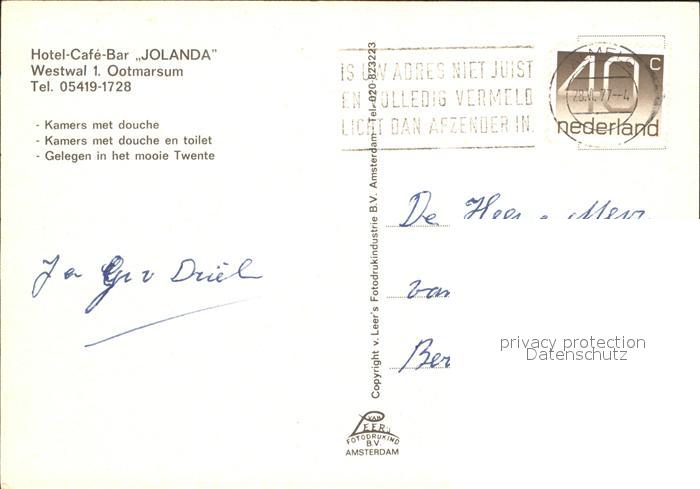 Hotel-Café-Bar „JOLANDA"
Westwal 1. Ootmarsum
Tel. 05419-1728
- Kamers met douche
- Kamers met douche en toilet
- Gelegen in het mooie Twente
IS UW ADRES NIET JUIST
EN VOLLEDIG VERMELD
LICHT DAN AFZENDER IN.
40 c
nederland
77--4
De Heer - Mevr
van
Ber
v Driel
privacy protection
Datenschutz
Copyright v. Leer's Fotodrukindustrie B.V. Amsterdam Tel. 020-823223
VAN
LEER's
FOTODRUKIND
B.V.
AMSTERDAM